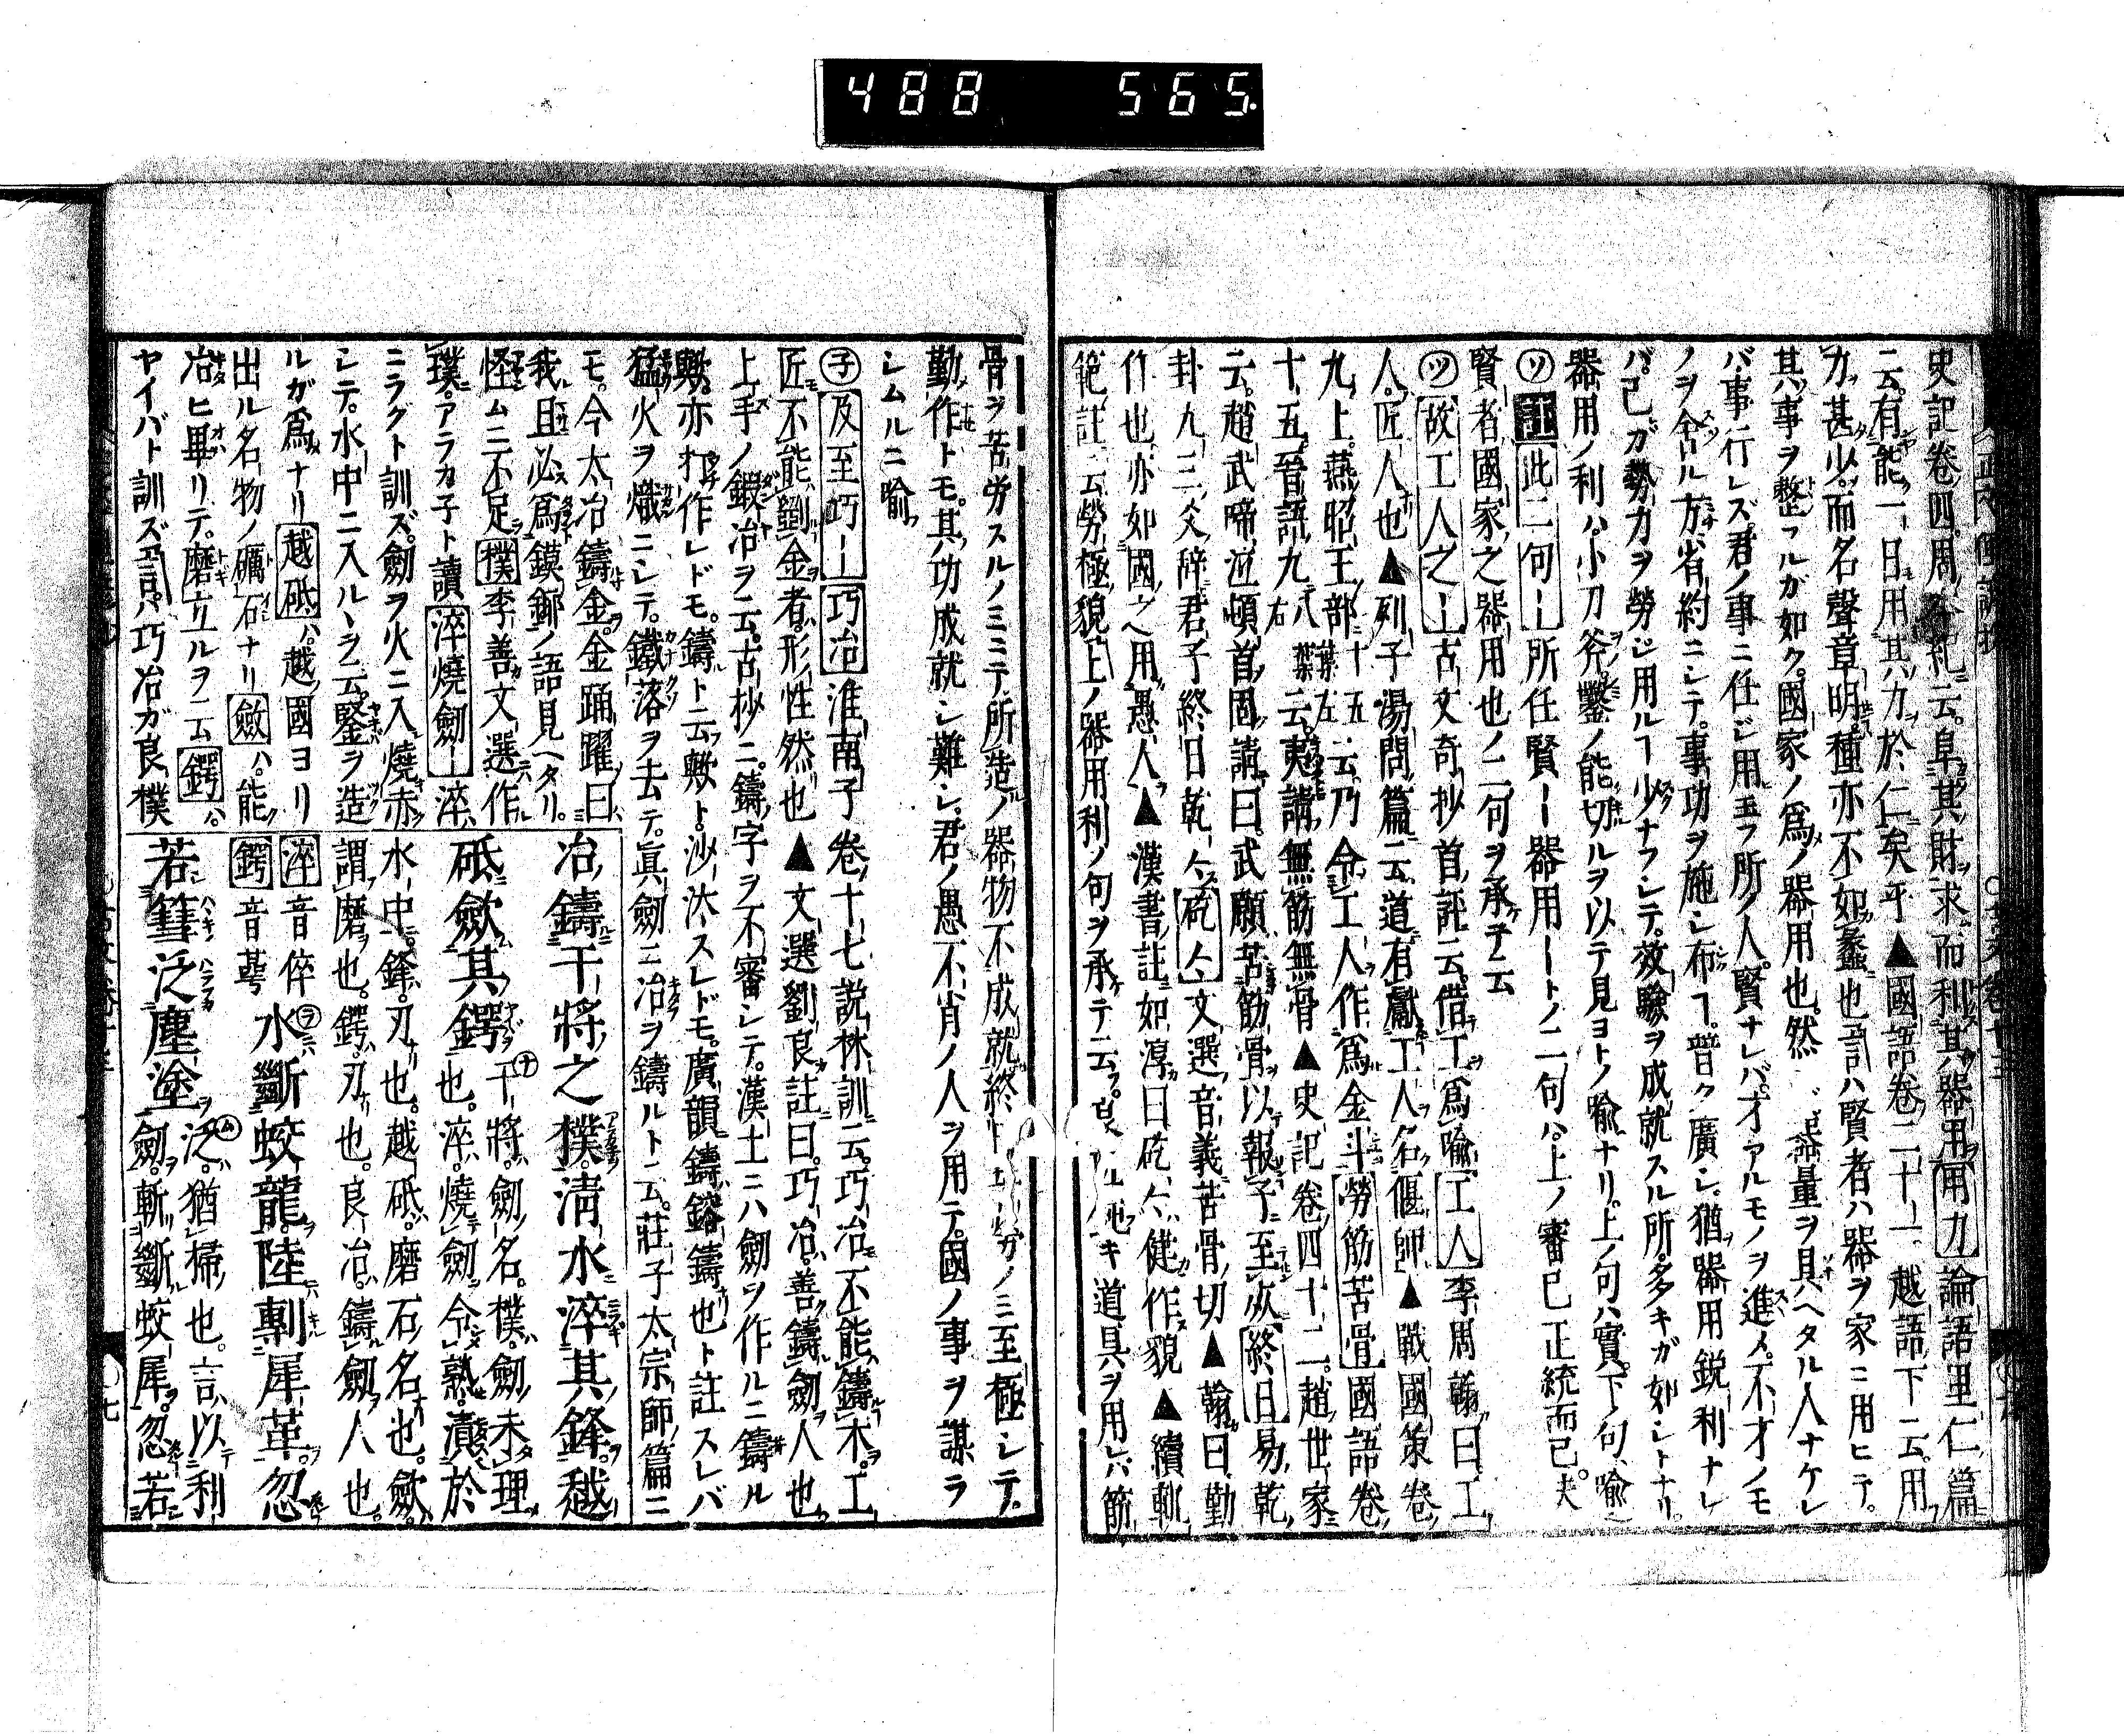 488 565
史記卷四周本紀ニ云阜其財求而利其器用 用力 論語里仁篇
云有能一日用其力於仁矣乎▲國語卷二十一越語下云用
力甚少而名聲章明種亦不如蠡也言ハ賢者ハ器ヲ家ニ用ヒテ
其事ヲ整フルガ如ク國家ノ爲ノ器用也然 器量ヲ具ヘタル人ナケレ
バ事行レズ君ノ事ニ任ジ用玉フ所ノ人賢ナレバ才アルモノヲ進メ不才ノモ
ノヲ舍ル方省約ニシテ事功ヲ施シ布ヿ普ク廣シ猶器用鋭利ナレ
バ己ガ勢力ヲ勞シ用ルヿ少ナフシテ效驗ヲ成就スル所多キガ如シトナリ
器用ノ利ハ小刀斧鑿ノ能切ルヲ以テ見ヨトノ喩ナリ上ノ句ハ實下句ハ喩
㋞ 註 此二句ー 所任賢ー器用ートノ二句ハ上ノ審己正統而已夫
賢者國家之器用也ノ二句ヲ承テ云
㋡ 故工人之ー 古文奇抄首評云借工爲喩 工人 李周翰曰工
人匠人也▲列子湯問篇云道有獻工人名偃師▲戰國策卷
九上燕昭王部二十五葉左云乃令工人作爲金斗 勞筋苦骨 國語卷
十五晉語九八葉右云夷請無筋無骨▲史記卷四十二趙世家
云趙武啼泣頓首固請曰武願苦筋骨以報子至死 終日 易乾
卦九三爻辭君子終日乾〻 矻〻 文選音義苦骨切▲翰曰勤
作也亦如國之用愚人▲漢書註如淳曰矻〻健作貌▲續軌
範註云勞極貌上ノ器用利ノ句ヲ承テ云 キ道具ヲ用レバ筋
骨ヲ苦労スルノミニテ所造ノ器物不成就終日 ガノミ至極シテ
勤作トモ其功成就シ難シ君ノ愚不肖ノ人ヲ用テ國ノ事ヲ謀ラ
シムルニ喩
㋧ 及至巧ー 巧冶 淮南子卷十七説林訓云巧冶不能鑄木工
匠不能斵金者形性然也▲文選劉良註曰巧冶善鑄劒人也
上手ノ鍜冶ヲ云古抄ニ鑄字ヲ不審シテ漢土ニハ劒ヲ作ルニ鑄ル
歟亦打作レドモ鑄ト云歟ト沙汰スレドモ廣韻鑄鎔鑄也ト註スレバ
猛火ヲ熾ニシテ鐵落ヲ去テ眞劒ニ冶ヲ鑄ルト云莊子太宗師篇ニ
モ今太冶鑄金金踊躍曰
我且必爲鏌鋣ノ語見ヘタリ
怪ムニ不足 樸 李善文選作
璞アラカ子ト讀 淬燒劒ー 淬
ニラグト訓ズ劒ヲ火ニ入燒赤
シテ水中ニ入ル丶ヲ云鋻ヲ造
ルガ爲ナリ 越砥ハ 越國ヨリ
出ル名物ノ礪石ナリ 斂ハ 能
冶ヒ畢リテ磨立ルヲ云 鍔ハ
ヤイバト訓ズ言ハ巧冶ガ良樸
冶鑄干將之樸清水淬其鋒越
砥斂其鍔 ㋤干將劒名樸劒未理
也淬燒劒令熟漬於
水中鋒刃也越砥磨石名也斂
謂磨也鍔刃也良冶鑄劒人也
淬 音倅
鍔 音萼 ㋶水斷蛟龍陸剸犀革忽
若篲泛塵塗 ㋰泛猶掃也言以利
劒斬斷蛟犀忽若